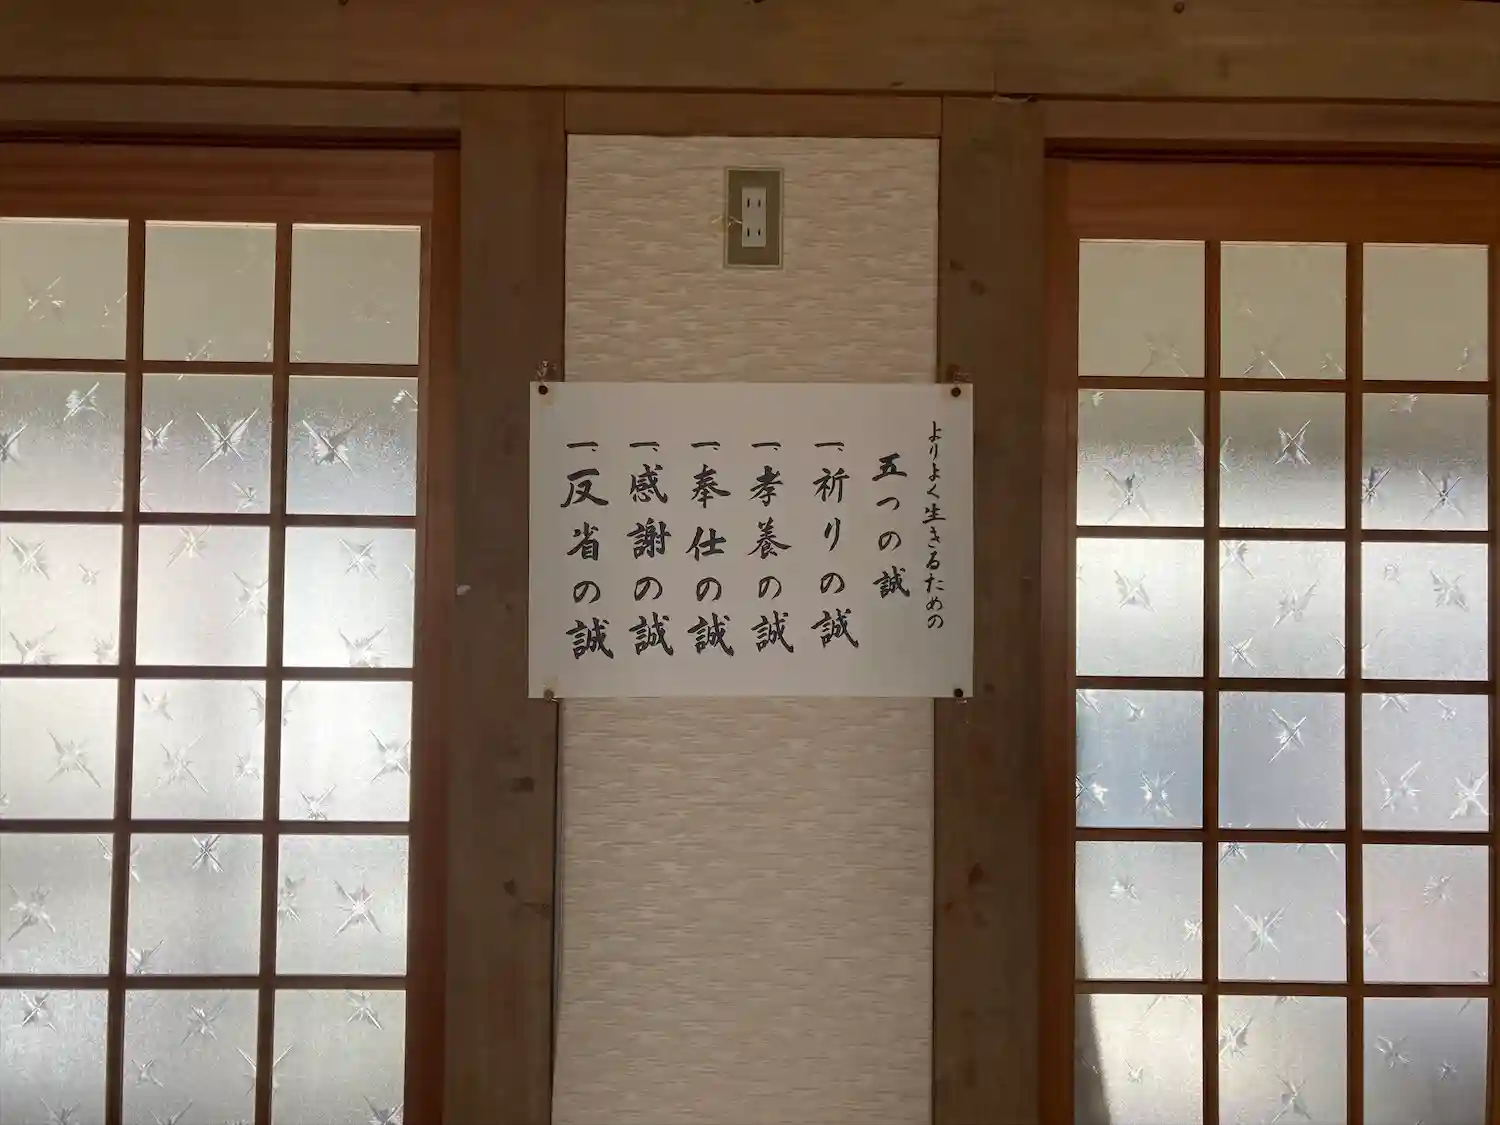 よりよく生きるための
五つの誠
一、祈りの誠
一、孝養の誠
一、奉仕の誠
一、感謝の誠
一、反省の誠